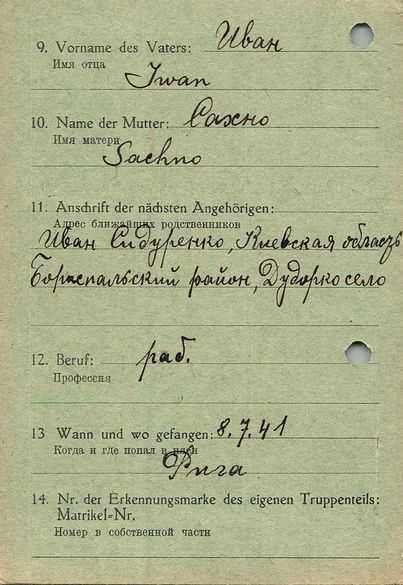 9. Vorname des Vaters: Иван
Имя отца
Iwan
10. Name der Mutter: Сахно
Имя матери
Sachno
11. Anschrift der nächsten Angehörigen:
Адрес ближайших родственников
Иван Сидуренко, Киевская область
Бориспальский район, Дударко село
12. Beruf: раб.
Профессия
13 Wann und wo gefangen: 8.7.41
Когда и где попал в плен
Рига
14. Nr. der Erkennungsmarke des eigenen Truppenteils:
Matrikel-Nr.
Номер в собственной части